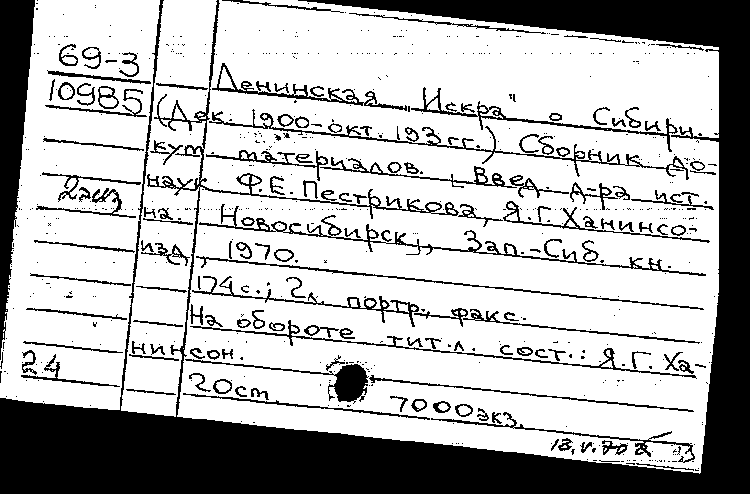 69-3
10985
Ленинская "Искра" о Сибири.
(Дек. 1900-окт. 193гг.) Сборник до-
кум. материалов. Введ. д-ра ист.
2 экз
наук Ф.Е. Пестрикова, Я.Г. Ханинсо-
на. Новосибирск, Зап.-Сиб. кн.
изд, 1970.
174с.; 2л. портр., факс.
На обороте тит.л. сост.: Я.Г. Ха-
нинсон.
24
20см. 7000экз.